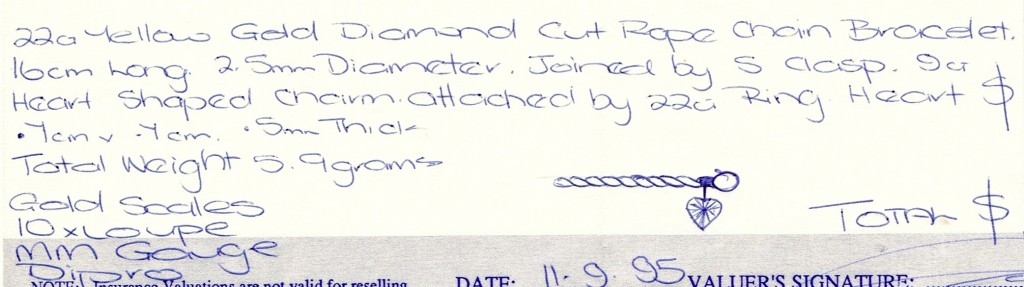 22ct Yellow Gold Diamond Cut Rope Chain Bracelet.
16cm Long. 2.5mm Diameter. Joined by S Clasp. 9ct
Heart Shaped Charm. attached by 22ct Ring. Heart $
.7cm x .7cm. .5mm Thick
Total Weight 5.9grams
Gold Scales
10xLoupe
TOTAL $
MM Gauge
NOTE: Insurance Valuations are not valid for reselling
DATE: 11.9.95 VALUER'S SIGNATURE: